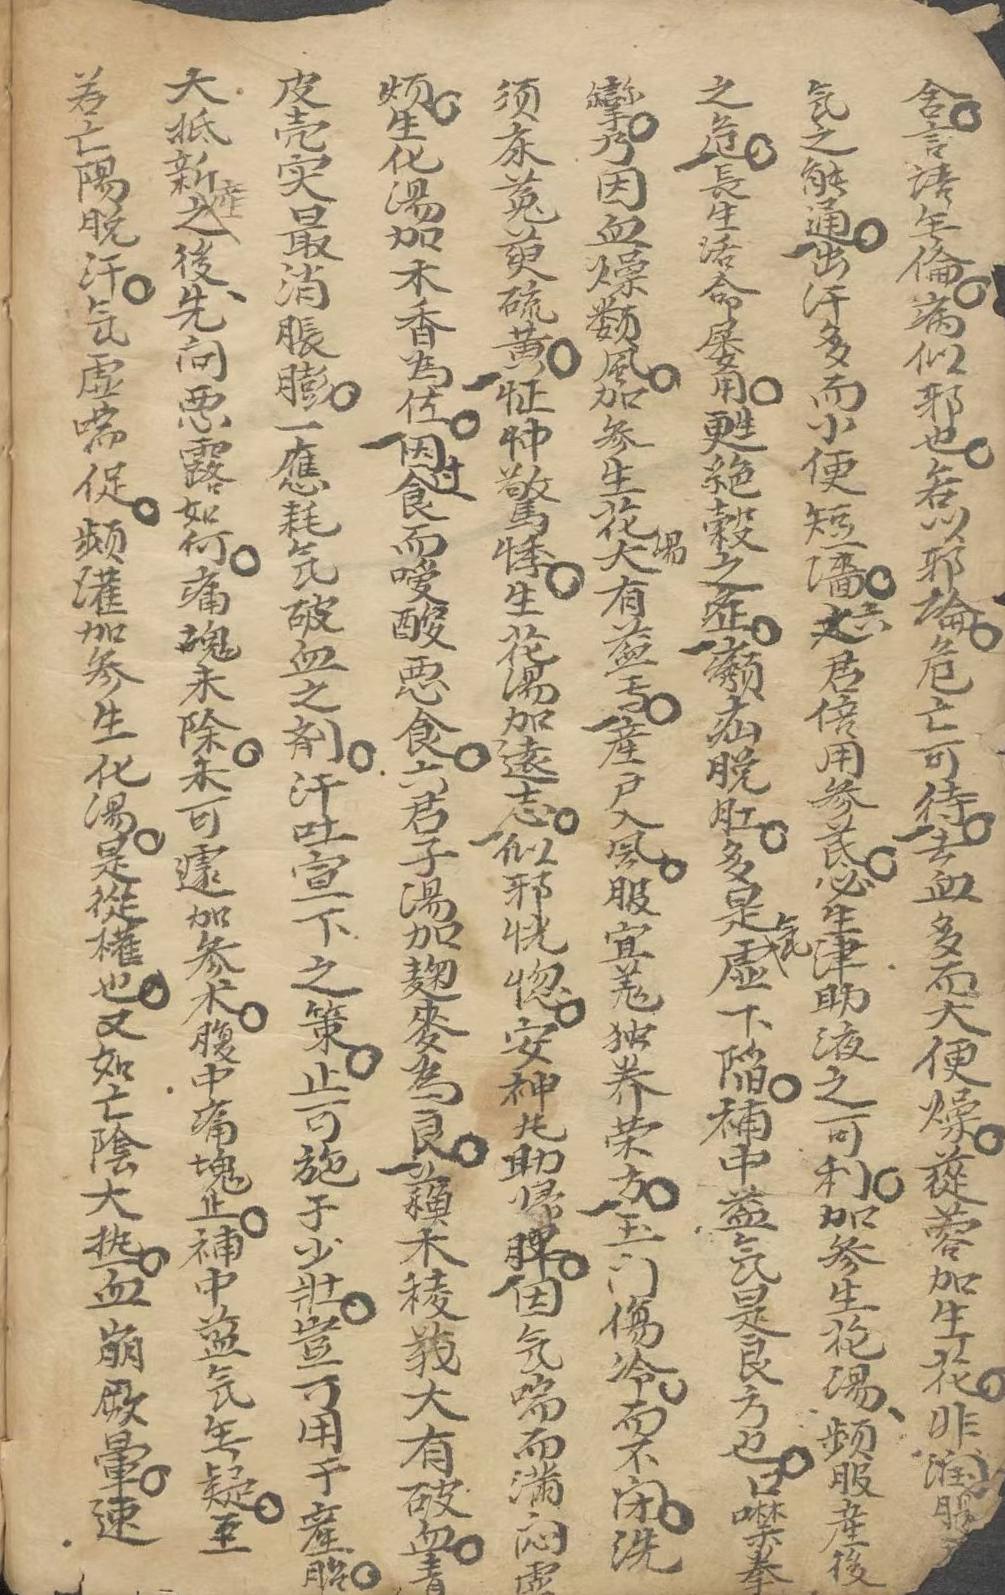 舍言語無倫病似邪也無以邪論危亡可待去血多而大便燥蓯蓉加生花非潤腸
氣之能通出汗多而小便短濇六君倍用參芪必生津助液之可利加參生花湯頻服產後
之危長生活命屢用甦絕穀之症癩疝脫肛多是氣虛下陷補中益氣是良方也口噤拳
攣乃因血燥類風加參生花湯大有益焉產戶入風服宜羗独养荣方玉门傷冷而不闭洗
须床菟萸硫黄怔忡驚悸生花湯加遠志似邪恍惚安神丸助归脾因气喘而满闷虚
烦生化湯加木香為佐因过食而噯酸悪食六君子湯加麹麥為良蘓木稜莪大有破血青
皮壳实最消脹膨一應耗气破血之剤汗吐宣下之策止可施于少壯豈可用于產胎
大抵新產之後先问悪露如何痛塊未除未可遽加参术腹中痛塊止補中益气無疑至
若亡陽脫汗气虛喘促頻灌加參生化湯是從權也又如亡陰大热血崩厥暈速